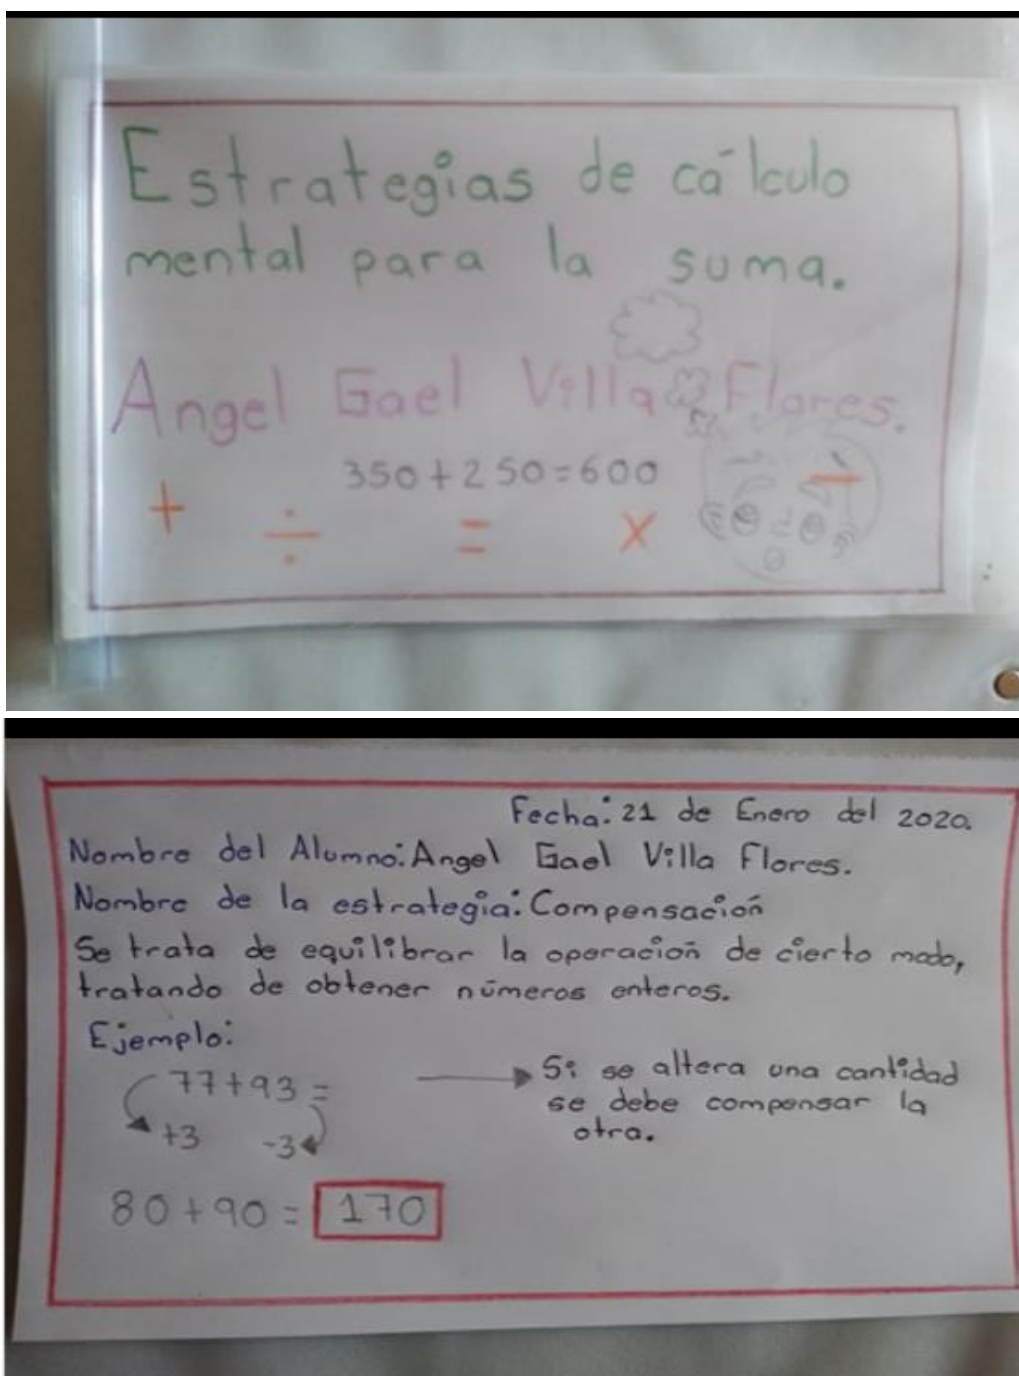 Estrategias de cálculo
mental para la suma.
Angel Gael Villa Flores.
350+250=600
+ ÷ = x -
Fecha: 21 de Enero del 2020.
Nombre del Alumno: Angel Gael Villa Flores.
Nombre de la estrategia: Compensación
Se trata de equilibrar la operación de cierto modo,
tratando de obtener números enteros.
Ejemplo:
77+93=
+3 -3
Si se altera una cantidad
se debe compensar la
otra.
80+90= 170